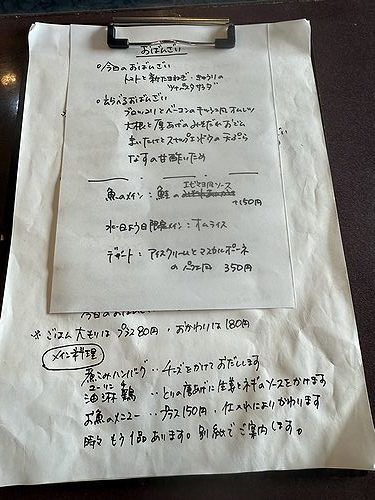 おばんざい
○今日のおばんざい
トマトと新たまねぎ・きゅうりの
ツナパスタサラダ
○えらべるおばんざい
ブロッコリとベーコンのチーズ風オムレツ
大根と厚あげのみぞれおでん
まいたけとスナップエンドウの天ぷら
なすの甘酢いため
魚のメイン：鮭のエビマヨ風ソース
+150円
水・日よう日限定メイン：オムライス
デザート：アイスクリームとマスカルポーネ
のパフェ風 350円
今日のおばんざい
※ごはん大もりはプラス80円、おかわりは180円
メイン料理
煮こみハンバーグ・・チーズをかけておだしします
ユーリンチー
油淋鶏・・とりの唐あげに生姜とネギのソースをかけます
お魚のメニュー・・プラス150円、仕入れによりかわります
時々もう1品あります。別紙でご案内します。